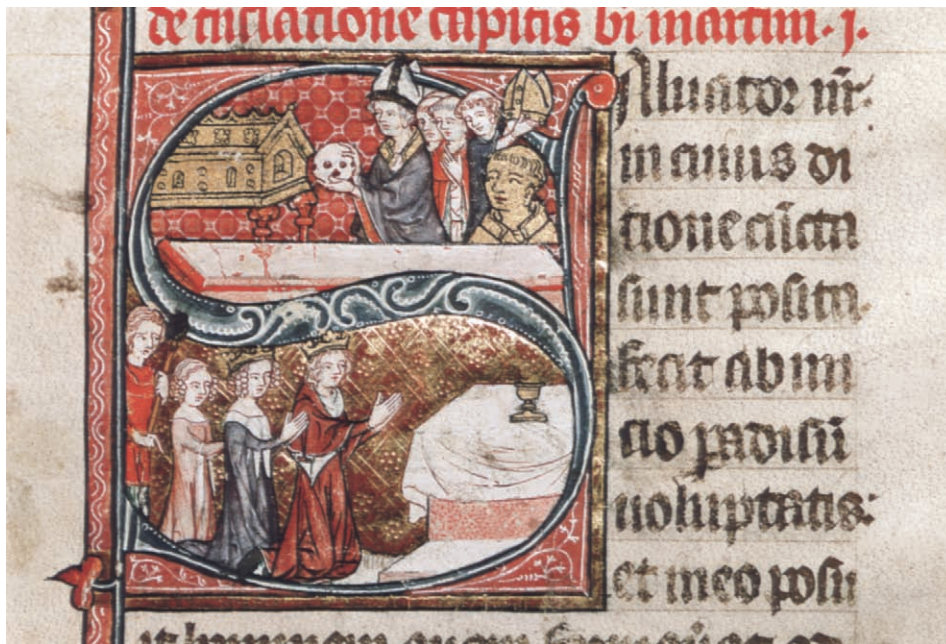 de tnslatione capitis bi martini. j.
SAluator nr̄.
in cuius di
tione cūcta
sunt posita.
fecit ab ini
cio padisū
uoluptatis:
et in eo posu
it hominem quem